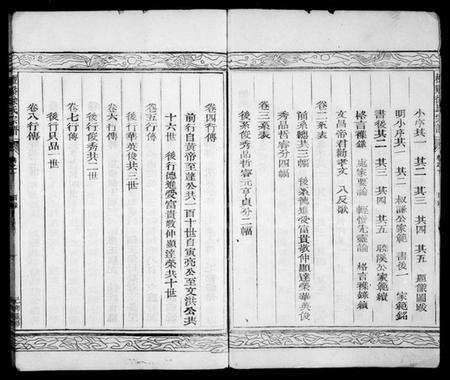 小序其一 其二 其三 其四 其五
明小序其一 其二 叔謙公家範 書後一 家範銘
書後其二 其三 其四 其五 公家範續
格言襍錄 處家要論 格言襍錄續
文昌帝君勸孝文 八反歌
卷二系表
前系總共三幅 後系德進愛富貴敬仲顯達榮華英俊
秀品哲睿分四幅
卷三系表
後系俊秀品哲睿元亨貞分二幅
卷四行傳
前行自黃帝至蓮公共一百十世自寅亮公至文洪公共
十六世 後行德進愛富貴敬仲顯達榮共十世
卷五行傳
後行華英俊共三世
卷六行傳
後行俊秀共二世
卷七行傳
後行只品一世
卷八行傳